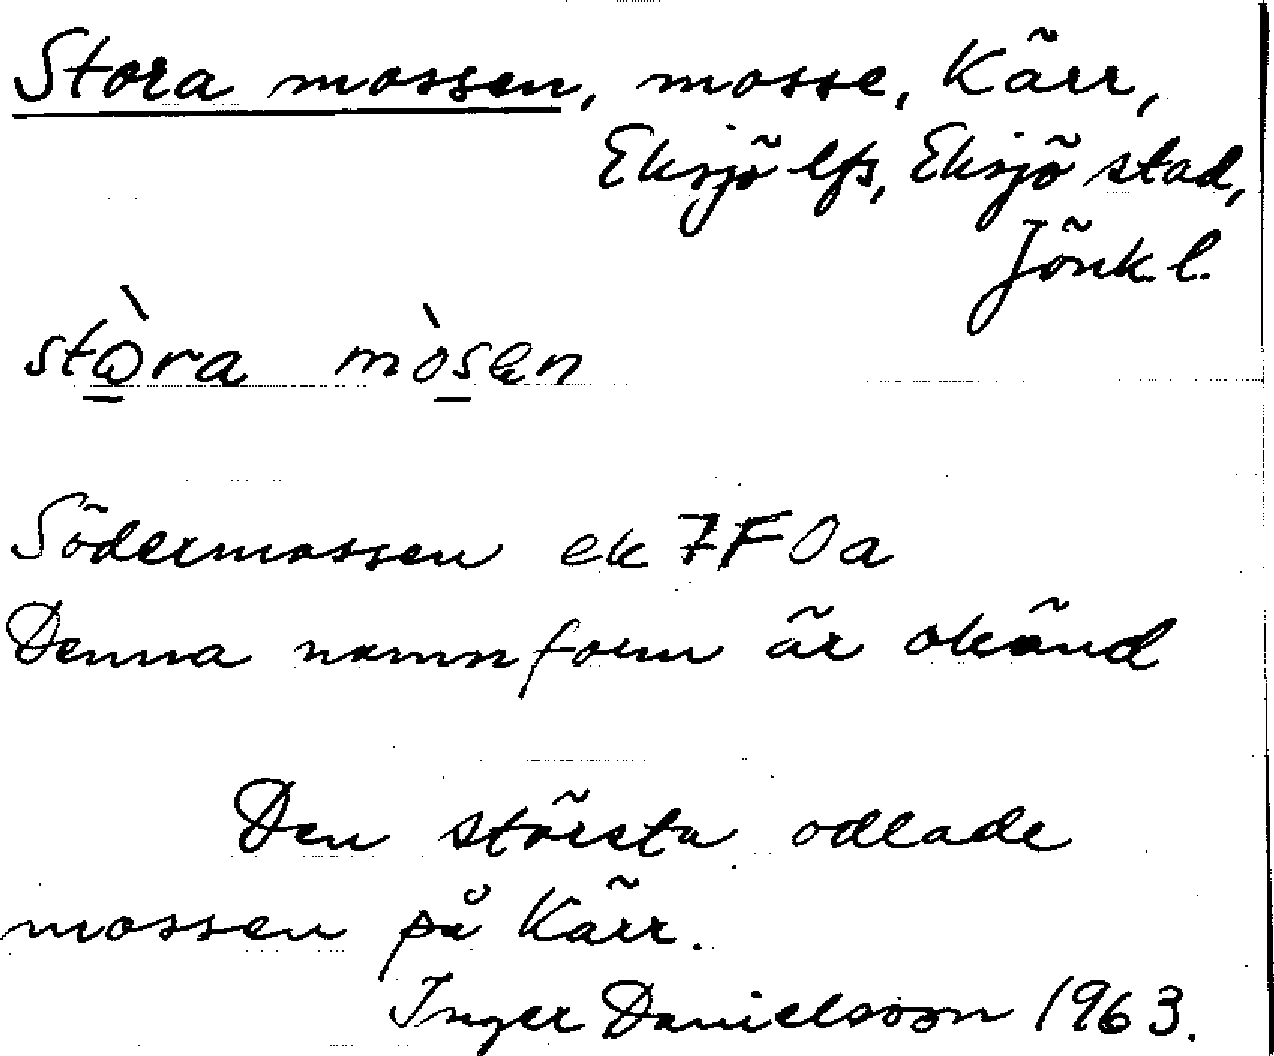 Stora mossen, mosse, Kärr,
Eksjö lfs, Eksjö stad,
Jönk. l.
stòra mòsen
Södermossen ek 7F0a
Denna namnform är okänd
Den största odlade
mossen på Kärr.
Inger Danielsson 1963.